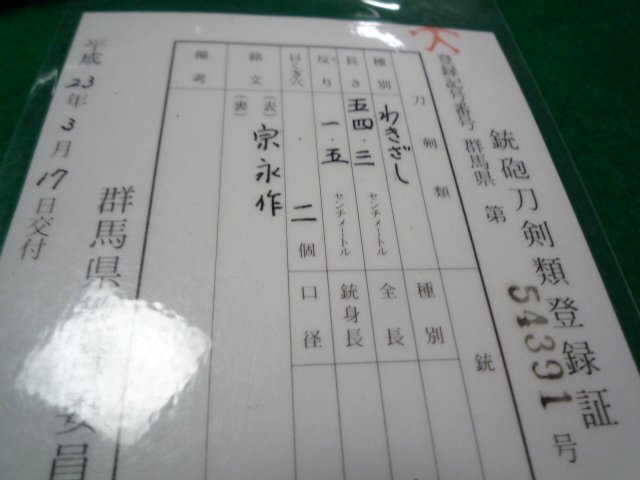 銃砲刀剣類登録証
登録記号番号 群馬県 第 54391 号
刀剣類
種別 わきざし
長さ 五四・三 センチメートル
反り 一・五 センチメートル
目くぎ穴 二 個
銘文 (表) 宗永作
(裏)
備考
銃
種別
全長
銃身長
口径
平成23年3月17日交付
群馬県
委員